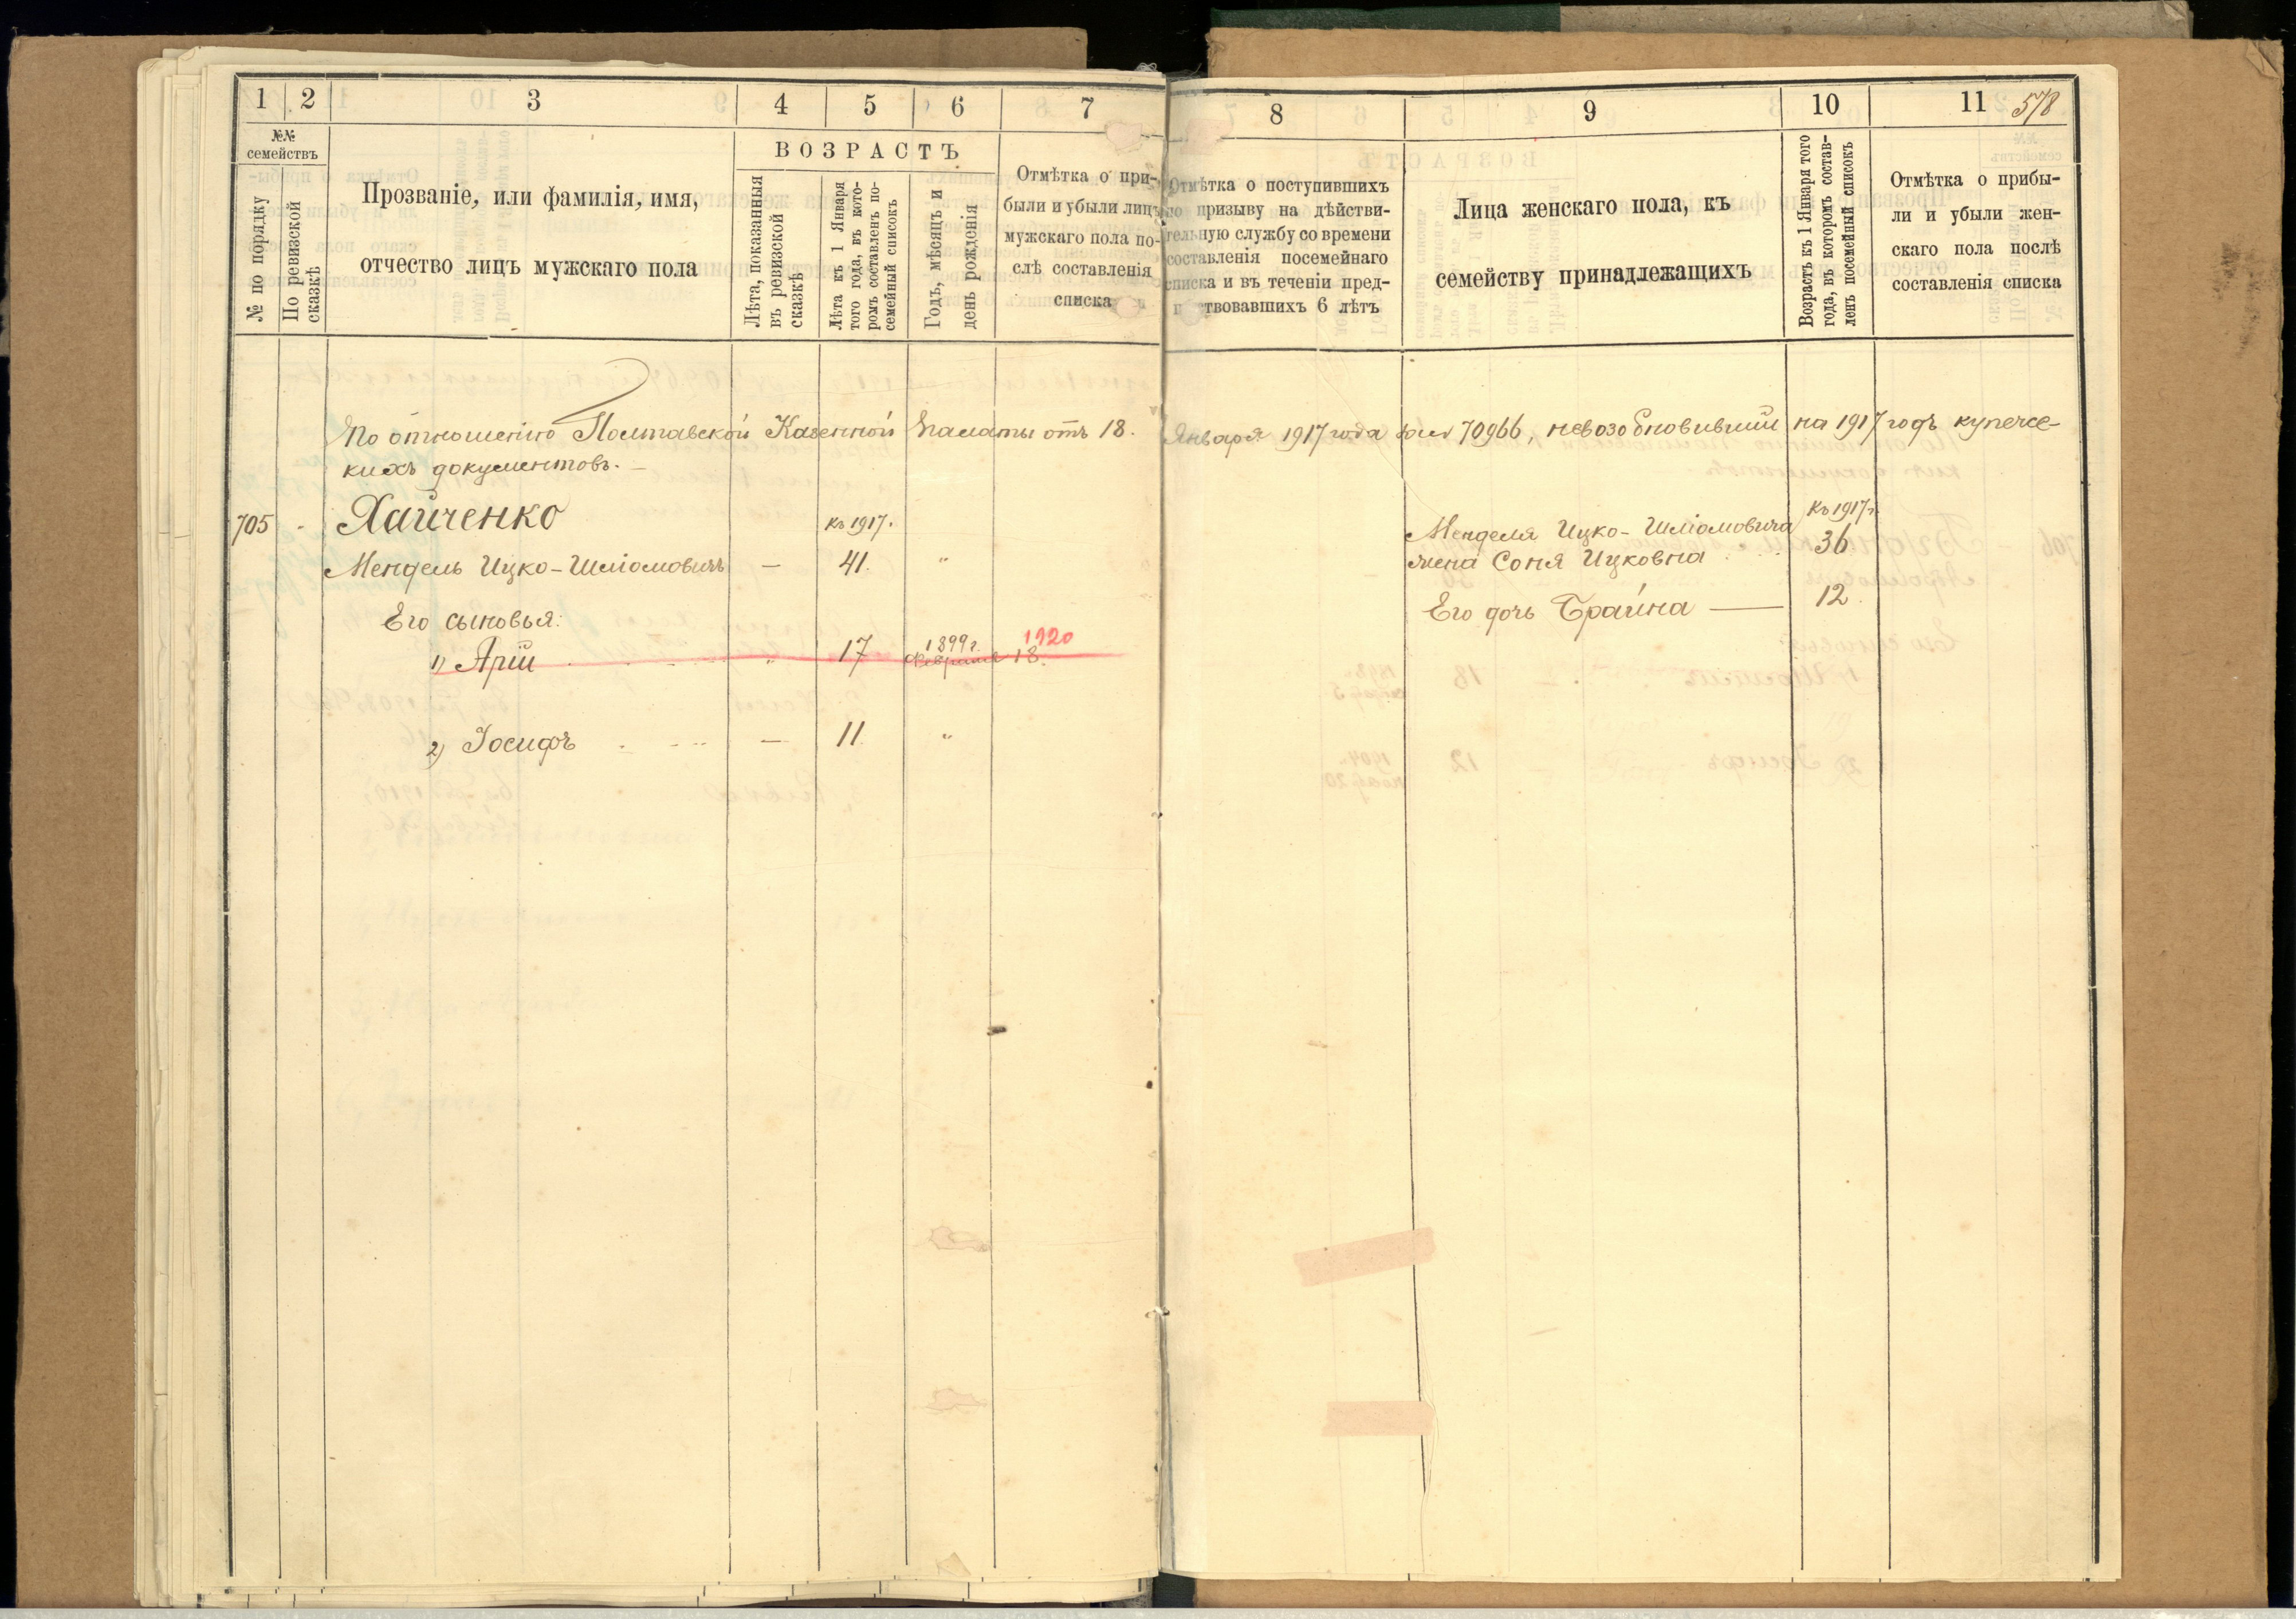 1 2 3 4 5 6 7
№№ семействъ
№ по порядку
По ревизской сказкѣ
Прозваніе, или фамилія, имя,
отчество лицъ мужскаго пола
ВОЗРАСТЪ
Лѣта, показанныя
въ ревизской
сказкѣ
Лѣта къ 1 Января
того года, въ кото-
ромъ составленъ по-
семейный списокъ
Годъ, мѣсяцъ и
день рожденія
Отмѣтка о при-
были и убыли лицъ
мужскаго пола по-
слѣ составленія
списка
8 9 10 11 578
Отмѣтка о поступившихъ
по призыву на дѣйстви-
тельную службу со времени
составленія посемейнаго
списка и въ теченіи пред-
твовавшихъ 6 лѣтъ
Лица женскаго пола, къ
семейству принадлежащихъ
Возрастъ къ 1 Января того
года, въ которомъ состав-
ленъ посемейный списокъ
Отмѣтка о прибы-
ли и убыли жен-
скаго пола послѣ
составленія списка
По отношенію Полтавской Казенной Палаты отъ 18. Января 1917 года за № 70966, невозобновившій на 1917 годъ купече-
кихъ документовъ.
705 - Хайченко къ 1917.
Мендель Ицко-Шліомовичъ — 41. "
Его сыновья:
1) Арій " 17 1899 г. Февраля 18. 1920
2) Іосифъ — 11 "
къ 1917 г.
Менделя Ицко-Шліомовича
жена Соня Ицковна 36
Его дочь Брайна — 12.